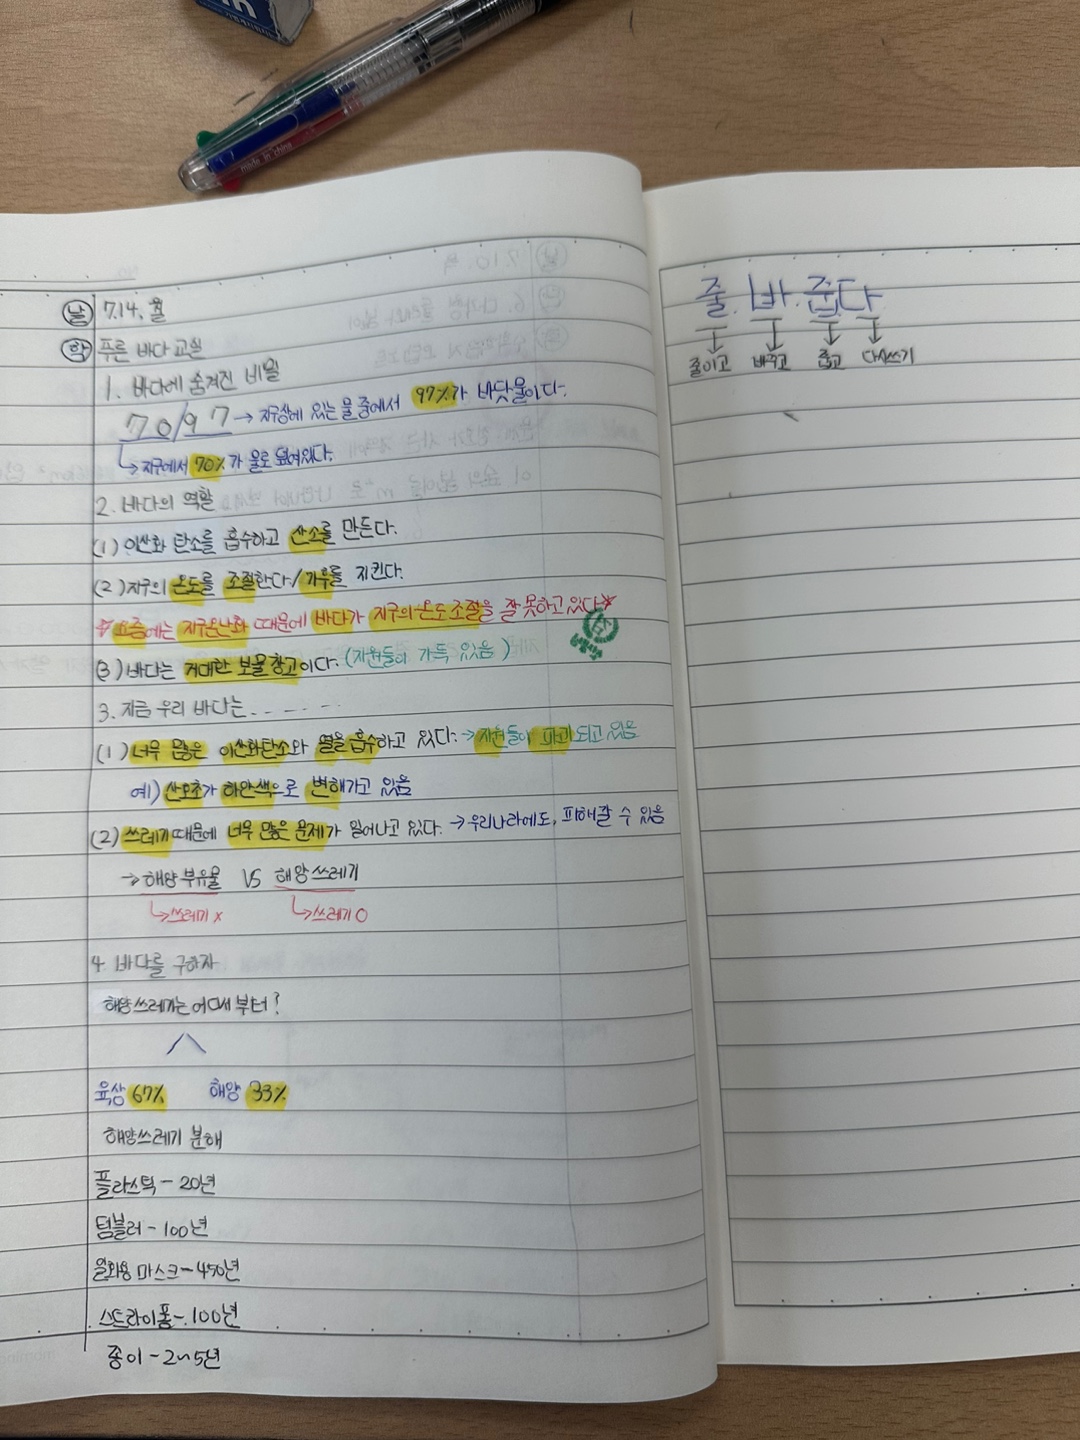 made in china
날 7.14. 월
학 푸른 바다 교실
1. 바다에 숨겨진 비밀
70/97 → 지구상에 있는 물 중에서 97%가 바닷물이다.
↳ 지구에서 70%가 물로 덮여있다.
2. 바다의 역할
(1) 이산화 탄소를 흡수하고 산소를 만든다.
(2) 지구의 온도를 조절한다/기후를 지킨다.
☆요즘에는 지구온난화 때문에 바다가 지구의 온도 조절을 잘 못하고 있다☆
(3) 바다는 거대한 보물창고이다. (자원들이 가득 있음)
3. 지금 우리 바다는. - - - - -
(1) 너무 많은 이산화탄소와 열을 흡수하고 있다. → 자원들이 파괴 되고 있음
예) 산호초가 하얀색으로 변해가고 있음
(2) 쓰레기 때문에 너무 많은 문제가 일어나고 있다. → 우리나라에도, 피해갈 수 있음
→ 해양 부유물 VS 해양 쓰레기
↳쓰레기 x ↳쓰레기 O
4. 바다를 구하자
해양 쓰레기는 어디서 부터?
육상 67% 해양 33%
해양쓰레기 분해
플라스틱 - 20년
텀블러 - 100년
일회용 마스크 - 450년
스트라이폼 - 100년
종이 - 2~5년
줄. 바. 줍다
줄이고 바꾸고 줍고 다시쓰기